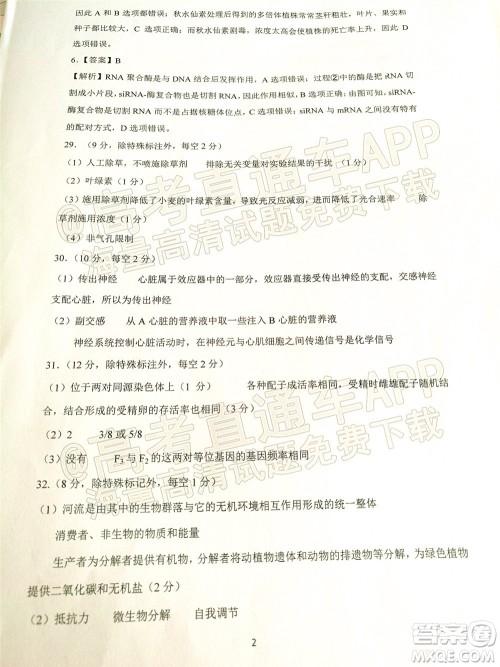 因此 A 和 B 选项都错误；秋水仙素处理后得到的多倍体植株常常茎秆粗壮，叶片、果实和
种子都比较大，C 选项正确；
6.【答案】B
【解析】RNA 聚合酶是与 DNA 结合后发挥作用，A 选项错误；过程②中
割成小片段，siRNA-
酶复合物是切割 RNA 而不是占据核糖体位点，C 选项错误；siRNA 与 mRNA 之间
的配对方式，D 选项错误。
29.（9 分，除特殊标注外，每空 2 分）
（1）人工除草，不喷施除草剂 排除无关变量对实验结果的干扰（1 分）
（2）叶绿素（1 分）
（3）施用除草剂降低了小麦的叶绿素含量，导致光反应减弱，进而降低了光合速率 除
草剂施用浓度（1 分）
（4）非气孔限制
30.（10 分，每空 2 分）
（1）传出神经 心脏属于效应器中的一部分，效应器就包括传出神经末梢，交感神经
支配心脏，所以为传出神经
（2）副交感 从 A 心脏的营养液中取一些注入 B 心脏的营养液
神经系统控制心脏活动时，在神经元与心肌细胞之间传递信号是化学信号
31.（12 分，除特殊标注外，每空 2 分）
（1）位于两对同源染色体上（1 分） 各种配子成活率相同，受精时雌雄配子随机结
合，结合形成的受精卵的存活率也相同（3 分）
（2）2 3/8 或 5/8
（3）没有 F₃与 F₂的这两对等位基因的基因频率相同
32.（8 分，除特殊标记外，每空 1 分）
（1）河流是由其中的生物群落与它的无机环境相互作用形成的统一整体
消费者、非生物的物质和能量
生产者为分解者提供有机物，分解者将动植物遗体和动物的排遗物等分解，为绿色植物
提供二氧化碳和无机盐（2 分）
（2）抵抗力 微生物分解 自我调节
2
@高考直通车APP
海量高清试题免费下载
答案圈